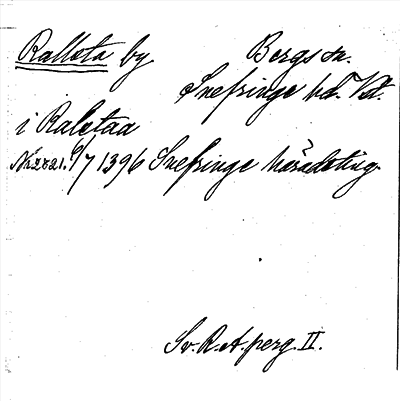 Rallsta by Bergs sn.
Snefringe hd. Vstm.
i Ralstaa
Nr 2821. 6/7 1396 Snefringe häradsting.
Sv. R. A. perg. II.